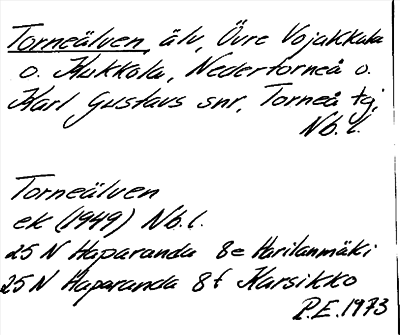 Torneälven, älv, Övre Vojakkala
o. Kukkola, Nedertorneå o.
Karl Gustavs snr, Torneå tg,
Nb. l.
Torneälven
ek (1949) Nb. l.
25 N Haparanda 8e Harilanmäki
25 N Haparanda 8f Karsikko
P.E. 1973